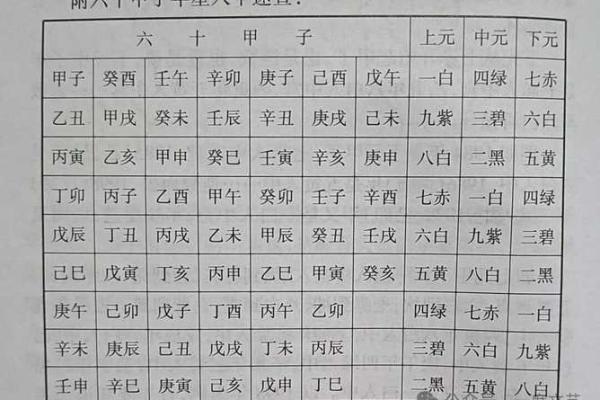 附六十甲子年星入中速查：
六 十 甲 子 上元 中元 下元
甲子 癸酉 壬午 辛卯 庚子 己酉 戊午 一白 四绿 七赤
乙丑 甲戌 癸未 壬辰 辛丑 庚戌 己未 九紫 三碧 六白
丙寅 乙亥 甲申 癸巳 壬寅 辛亥 庚申 八白 二黑 五黄
丁卯 丙子 乙酉 甲午 癸卯 壬子 辛酉 七赤 一白 四绿
戊辰 丁丑 丙戌 乙未 甲辰 癸丑 壬戌 六白 九紫 三碧
己巳 戊寅 丁亥 丙申 乙巳 甲寅 癸亥 五黄 八白 二黑
庚午 己卯 戊子 丁酉 丙午 乙卯 四绿 七赤 一白
辛未 庚辰 己丑 戊戌 丁未 丙辰 三碧 六白 九紫
壬申 辛巳 庚寅 己亥 戊申 丁巳 二黑 五黄 八白